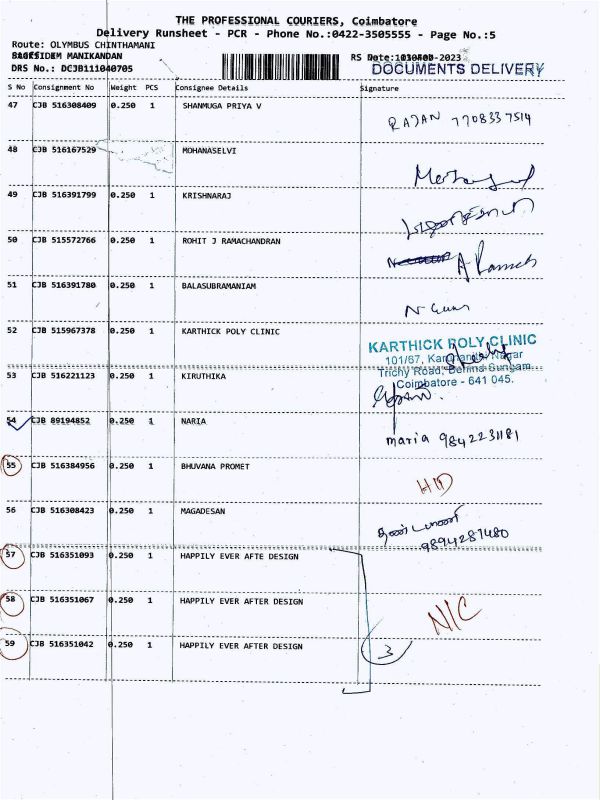 THE PROFESSIONAL COURIERS, Coimbatore
Delivery Runsheet - PCR - Phone No.:0422-3505555 - Page No.:5
Route: OLYMBUS CHINTHAMANI
MANIKANDAN
RS Date: -2023
DRS No.: DCJB111040705
DOCUMENTS DELIVERY
S No Consignment No Weight PCS Consignee Details Signature
47 CJB 516308409 0.250 1 SHANMUGA PRIYA V RAJAN 7708337514
48 CJB 516167529 MOHANASELVI
49 CJB 516391799 0.250 1 KRISHNARAJ
50 CJB 515572766 0.250 1 ROHIT J RAMACHANDRAN A Ramesh
51 CJB 516391780 0.250 1 BALASUBRAMANIAM
52 CJB 515967378 0.250 1 KARTHICK POLY CLINIC KARTHICK POLY CLINIC
101/67, Nagar
Trichy Road, Behind Sungam
Coimbatore - 641 045.
53 CJB 516221123 0.250 1 KIRUTHIKA
54 CJB 89194852 0.250 1 NARIA maria 9842231181
55 CJB 516384956 0.250 1 BHUVANA PROMET
56 CJB 516308423 0.250 1 MAGADESAN 9894287480
57 CJB 516351093 0.250 1 HAPPILY EVER AFTE DESIGN
58 CJB 516351067 0.250 1 HAPPILY EVER AFTER DESIGN N/C
59 CJB 516351042 0.250 1 HAPPILY EVER AFTER DESIGN 3